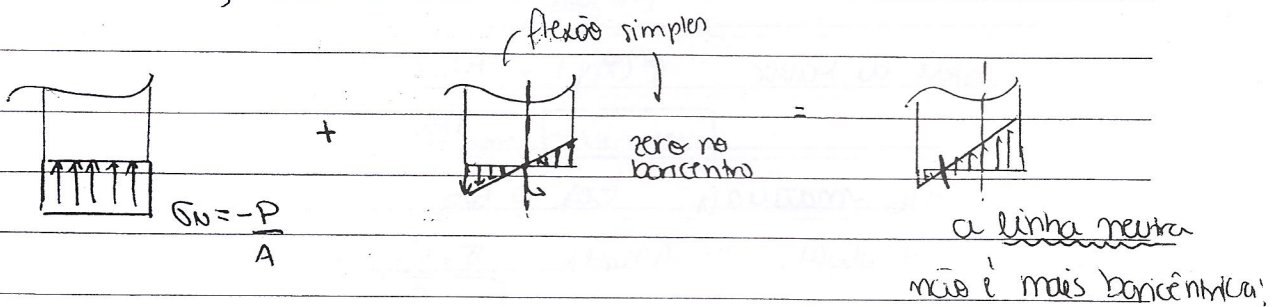 flexão simples
+
=
zero no
baricentro
σN = -P
A
a linha neutra
não é mais baricêntrica!